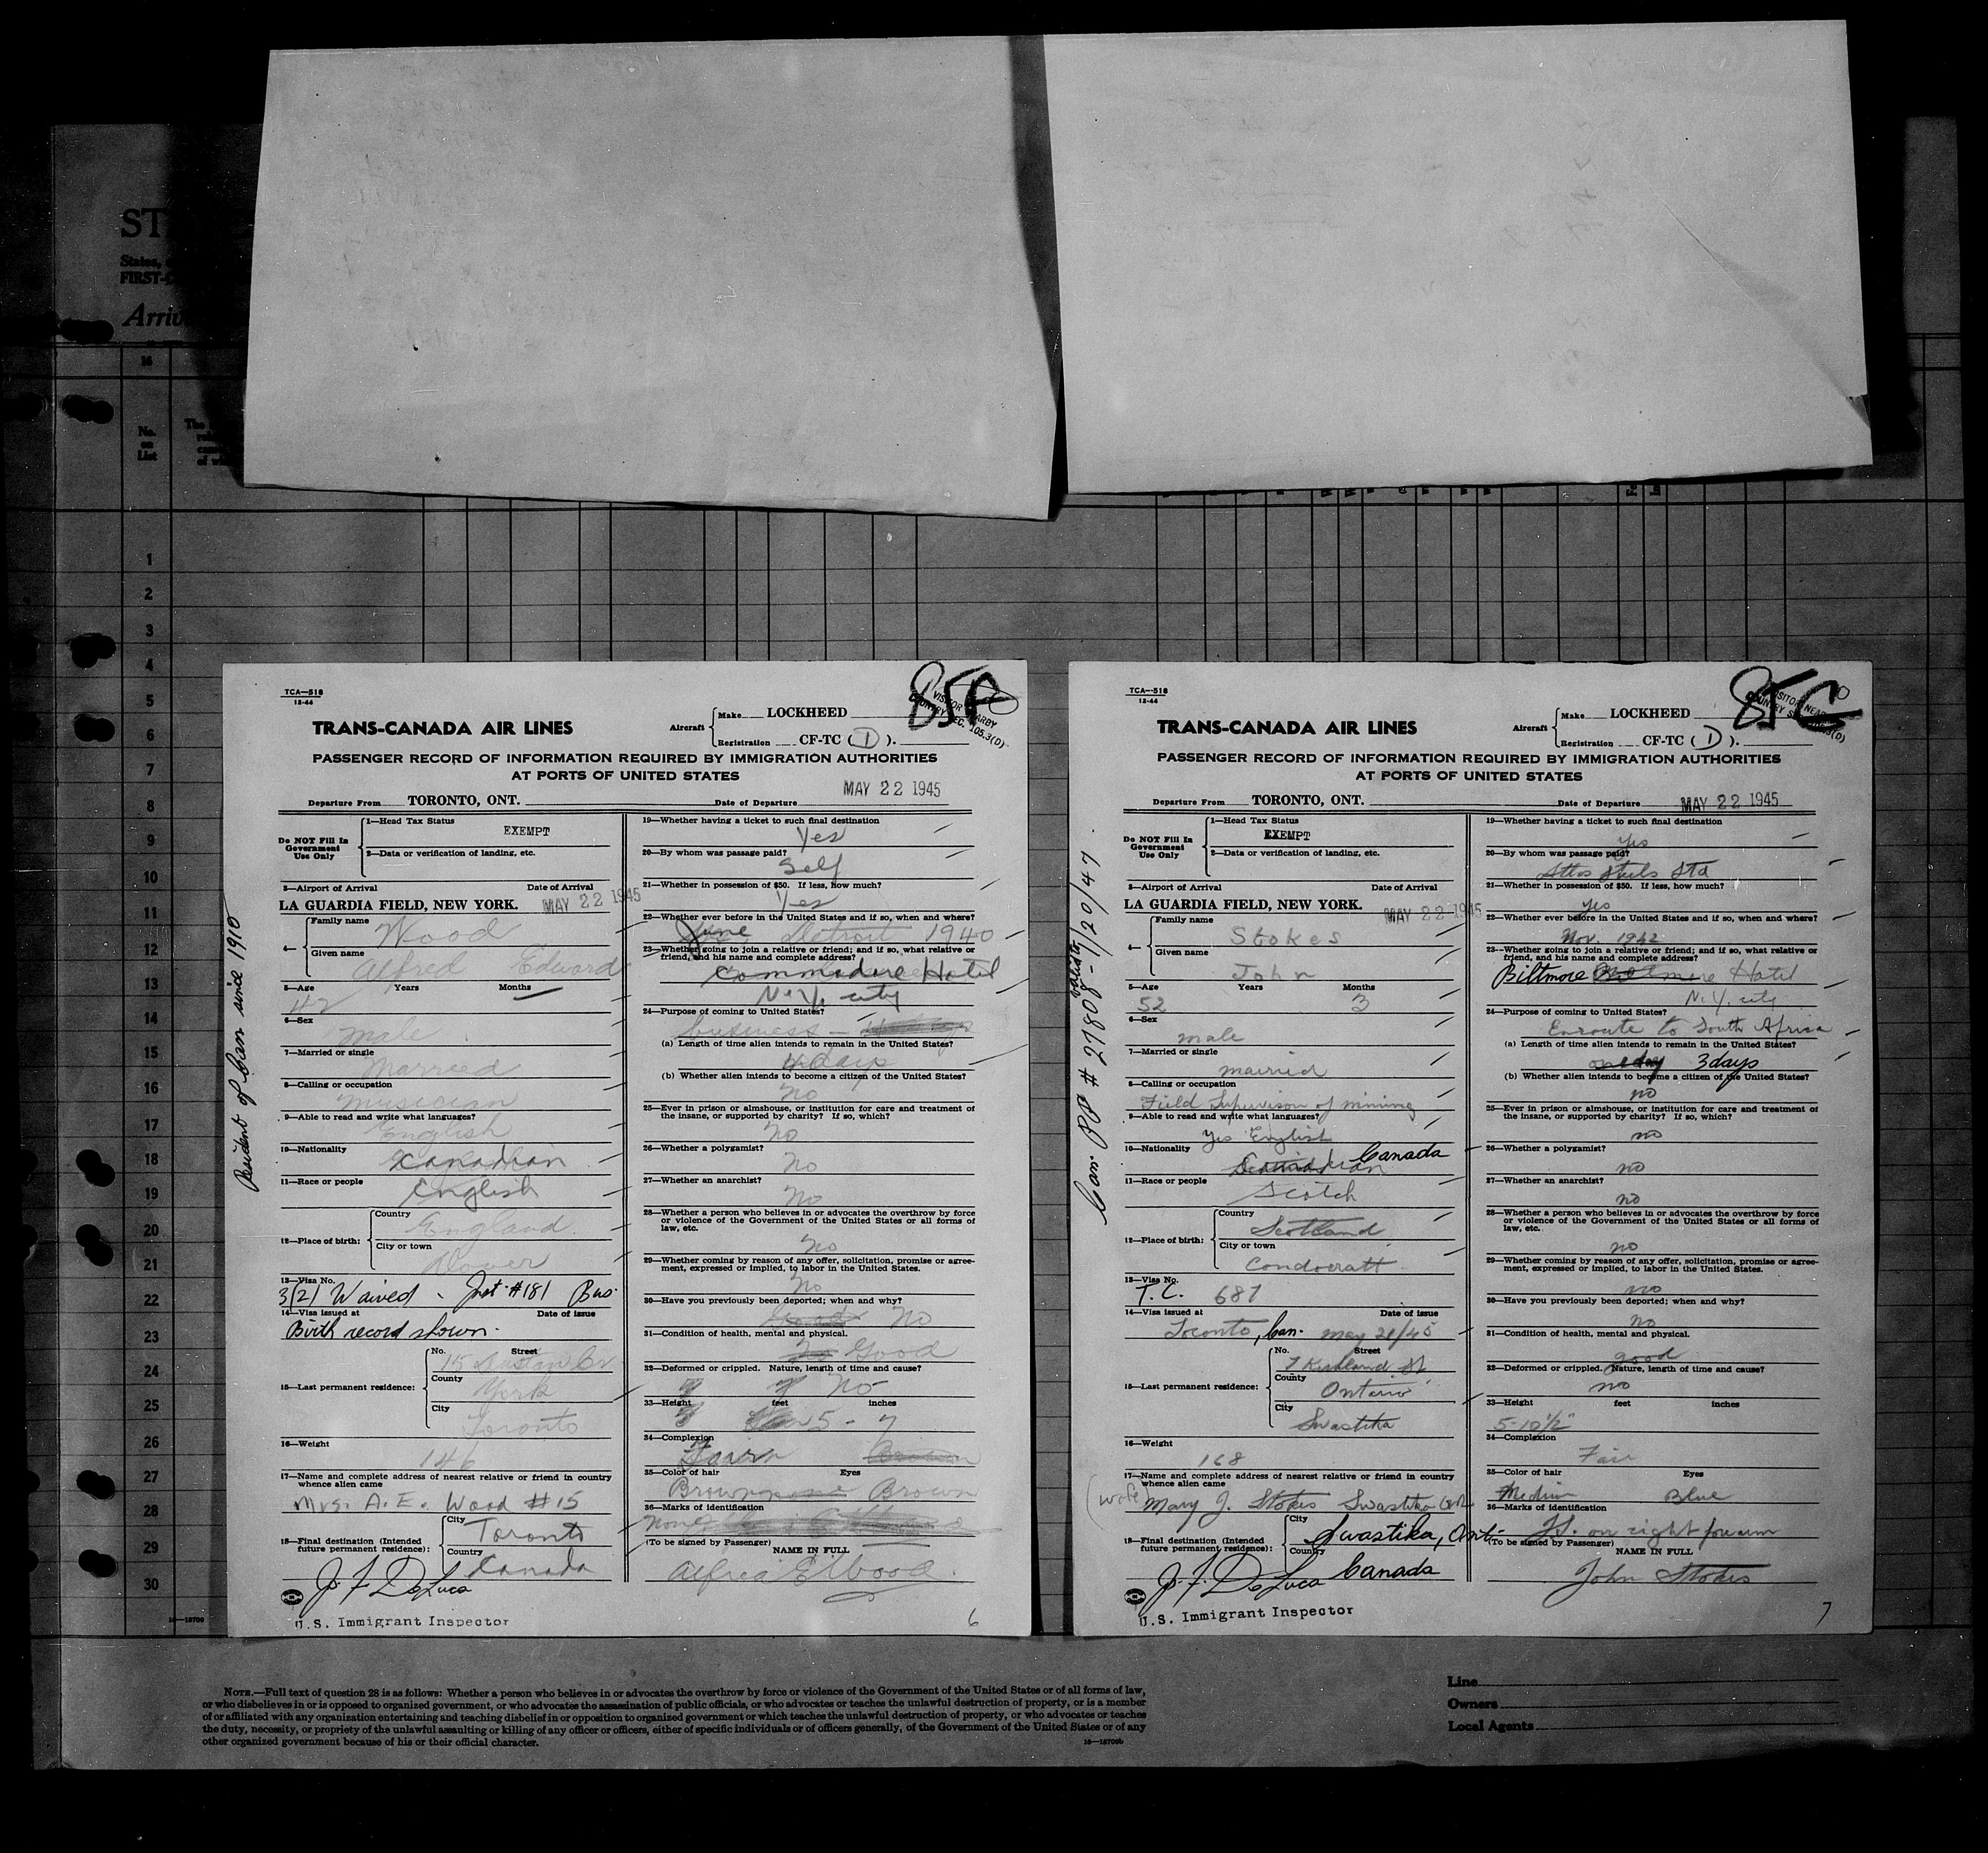 ST
States,
FIRST-C
Arriv
16
No.
on
List
The
1
2
3
4
5
6
7
8
9
10
11
12
13
14
15
16
17
18
19
20
21
22
23
24
25
26
27
28
29
30
TCA—518
12-44
85
TRANS-CANADA AIR LINES
Aircraft
Make LOCKHEED
Registration CF-TC ( I ).
PASSENGER RECORD OF INFORMATION REQUIRED BY IMMIGRATION AUTHORITIES
AT PORTS OF UNITED STATES
MAY 22 1945
Departure From TORONTO, ONT. Date of Departure
Resident of Can since 1910
Do NOT Fill In
Government
Use Only
1—Head Tax Status
EXEMPT
2—Data or verification of landing, etc.
3—Airport of Arrival Date of Arrival
LA GUARDIA FIELD, NEW YORK. MAY 22 1945
4—
Family name
Wood
Given name
Alfred Edward
5—Age Years Months
42
6—Sex
Male
7—Married or single
Married
8—Calling or occupation
Musician
9—Able to read and write what languages?
English
10—Nationality
Canadian
11—Race or people
English
12—Place of birth:
Country
England
City or town
Dover
13—Visa No.
3(2) Waived - Inst #181 Bus.
14—Visa issued at Date of issue
Birth record shown.
15—Last permanent residence:
No. Street
15
County
York
City
Toronto
16—Weight
146
17—Name and complete address of nearest relative or friend in country
whence alien came
Mrs. A. E. Wood #15
18—Final destination (Intended
future permanent residence):
City
Toronto
Country
Canada
J. F. DeLuca
U.S. Immigrant Inspector
19—Whether having a ticket to such final destination
Yes
20—By whom was passage paid?
Self
21—Whether in possession of $50. If less, how much?
Yes
22—Whether ever before in the United States and if so, when and where?
June Detroit 1940
23—Whether going to join a relative or friend; and if so, what relative or
friend, and his name and complete address?
Commodore Hotel
N.Y. city
24—Purpose of coming to United States?
business
(a) Length of time alien intends to remain in the United States?
4 days
(b) Whether alien intends to become a citizen of the United States?
No
25—Ever in prison or almshouse, or institution for care and treatment of
the insane, or supported by charity? If so, which?
No
26—Whether a polygamist?
No
27—Whether an anarchist?
No
28—Whether a person who believes in or advocates the overthrow by force
or violence of the Government of the United States or all forms of
law, etc.
No
29—Whether coming by reason of any offer, solicitation, promise or agree-
ment, expressed or implied, to labor in the United States.
No
30—Have you previously been deported; when and why?
No
31—Condition of health, mental and physical.
No Good
32—Deformed or crippled. Nature, length of time and cause?
No
33—Height feet inches
5 - 7
34—Complexion
35—Color of hair Eyes
Brown Brown
36—Marks of identification
none
(To be signed by Passenger) NAME IN FULL
Alfred E Wood.
6
TCA—518
12-44
85
TRANS-CANADA AIR LINES
Aircraft
Make LOCKHEED
Registration CF-TC ( I ).
PASSENGER RECORD OF INFORMATION REQUIRED BY IMMIGRATION AUTHORITIES
AT PORTS OF UNITED STATES
Departure From TORONTO, ONT. Date of Departure MAY 22 1945
Can. PP # 27808 - valid 1/20/47
Do NOT Fill In
Government
Use Only
1—Head Tax Status
EXEMPT
2—Data or verification of landing, etc.
3—Airport of Arrival Date of Arrival
LA GUARDIA FIELD, NEW YORK. MAY 22 1945
4—
Family name
Stokes
Given name
John
5—Age Years Months
52 3
6—Sex
male
7—Married or single
married
8—Calling or occupation
Field Supervison of mining
9—Able to read and write what languages?
yes English
10—Nationality
Canada
11—Race or people
Scotch
12—Place of birth:
Country
Scotland
City or town
Condorratt
13—Visa No.
T.C. 687
14—Visa issued at Date of issue
Toronto, Can. May 21/45
15—Last permanent residence:
No. Street
7 Kirkland St
County
Ontario
City
Swastika
16—Weight
168
17—Name and complete address of nearest relative or friend in country
whence alien came
(wife) Mary J. Stokes Swastika Ont.
18—Final destination (Intended
future permanent residence):
City
Swastika, Ont.
Country
Canada
J. F. DeLuca
U.S. Immigrant Inspector
19—Whether having a ticket to such final destination
Yes
20—By whom was passage paid?
Atlas Steels Ltd
21—Whether in possession of $50. If less, how much?
yes
22—Whether ever before in the United States and if so, when and where?
Nov. 1942
23—Whether going to join a relative or friend; and if so, what relative or
friend, and his name and complete address?
Biltmore Hotel
N.Y. city
24—Purpose of coming to United States?
Enroute to South Africa
(a) Length of time alien intends to remain in the United States?
one day 3 days
(b) Whether alien intends to become a citizen of the United States?
no
25—Ever in prison or almshouse, or institution for care and treatment of
the insane, or supported by charity? If so, which?
no
26—Whether a polygamist?
no
27—Whether an anarchist?
no
28—Whether a person who believes in or advocates the overthrow by force
or violence of the Government of the United States or all forms of
law, etc.
no
29—Whether coming by reason of any offer, solicitation, promise or agree-
ment, expressed or implied, to labor in the United States.
no
30—Have you previously been deported; when and why?
no
31—Condition of health, mental and physical.
good
32—Deformed or crippled. Nature, length of time and cause?
no
33—Height feet inches
5-10 1/2"
34—Complexion
Fair
35—Color of hair Eyes
Medium Blue
36—Marks of identification
on right forearm
(To be signed by Passenger) NAME IN FULL
John Stokes
7
16—18709
NOTE.—Full text of question 28 is as follows: Whether a person who believes in or advocates the overthrow by force or violence of the Government of the United States or of all forms of law,
or who disbelieves in or is opposed to organized government, or who advocates the assassination of public officials, or who advocates or teaches the unlawful destruction of property, or is a member
of or affiliated with any organization entertaining and teaching disbelief in or opposition to organized government or which teaches the unlawful destruction of property, or who advocates or teaches
the duty, necessity, or propriety of the unlawful assaulting or killing of any officer or officers, either of specific individuals or of officers generally, of the Government of the United States or of any
other organized government because of his or their official character.
16—18709b
Line
Owners
Local Agents